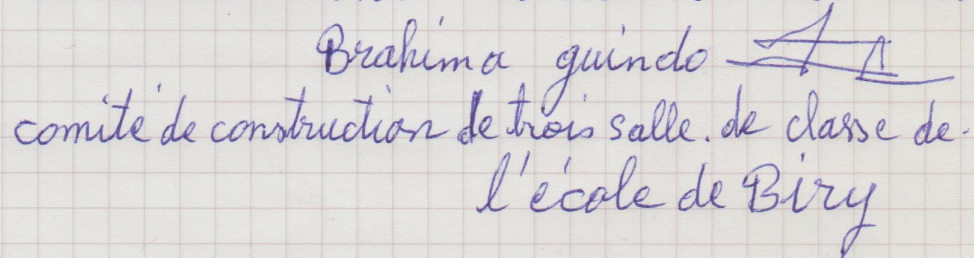 Brahima guindo
comité de construction de trois salle. de classe de.
l'école de Biry